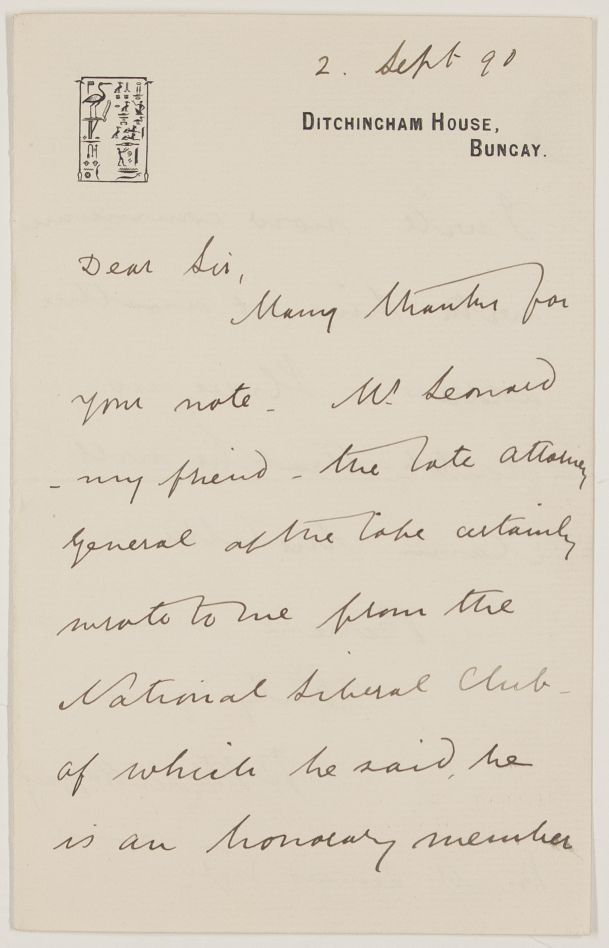 2. Sept 90
DITCHINGHAM HOUSE,
BUNGAY.
Dear Sir,
Many thanks for
your note - Mr Leonard
- my friend - the late attorney
General of the Cape certainly
wrote to me from the
National Liberal Club -
of which he said, he
is an honorary member